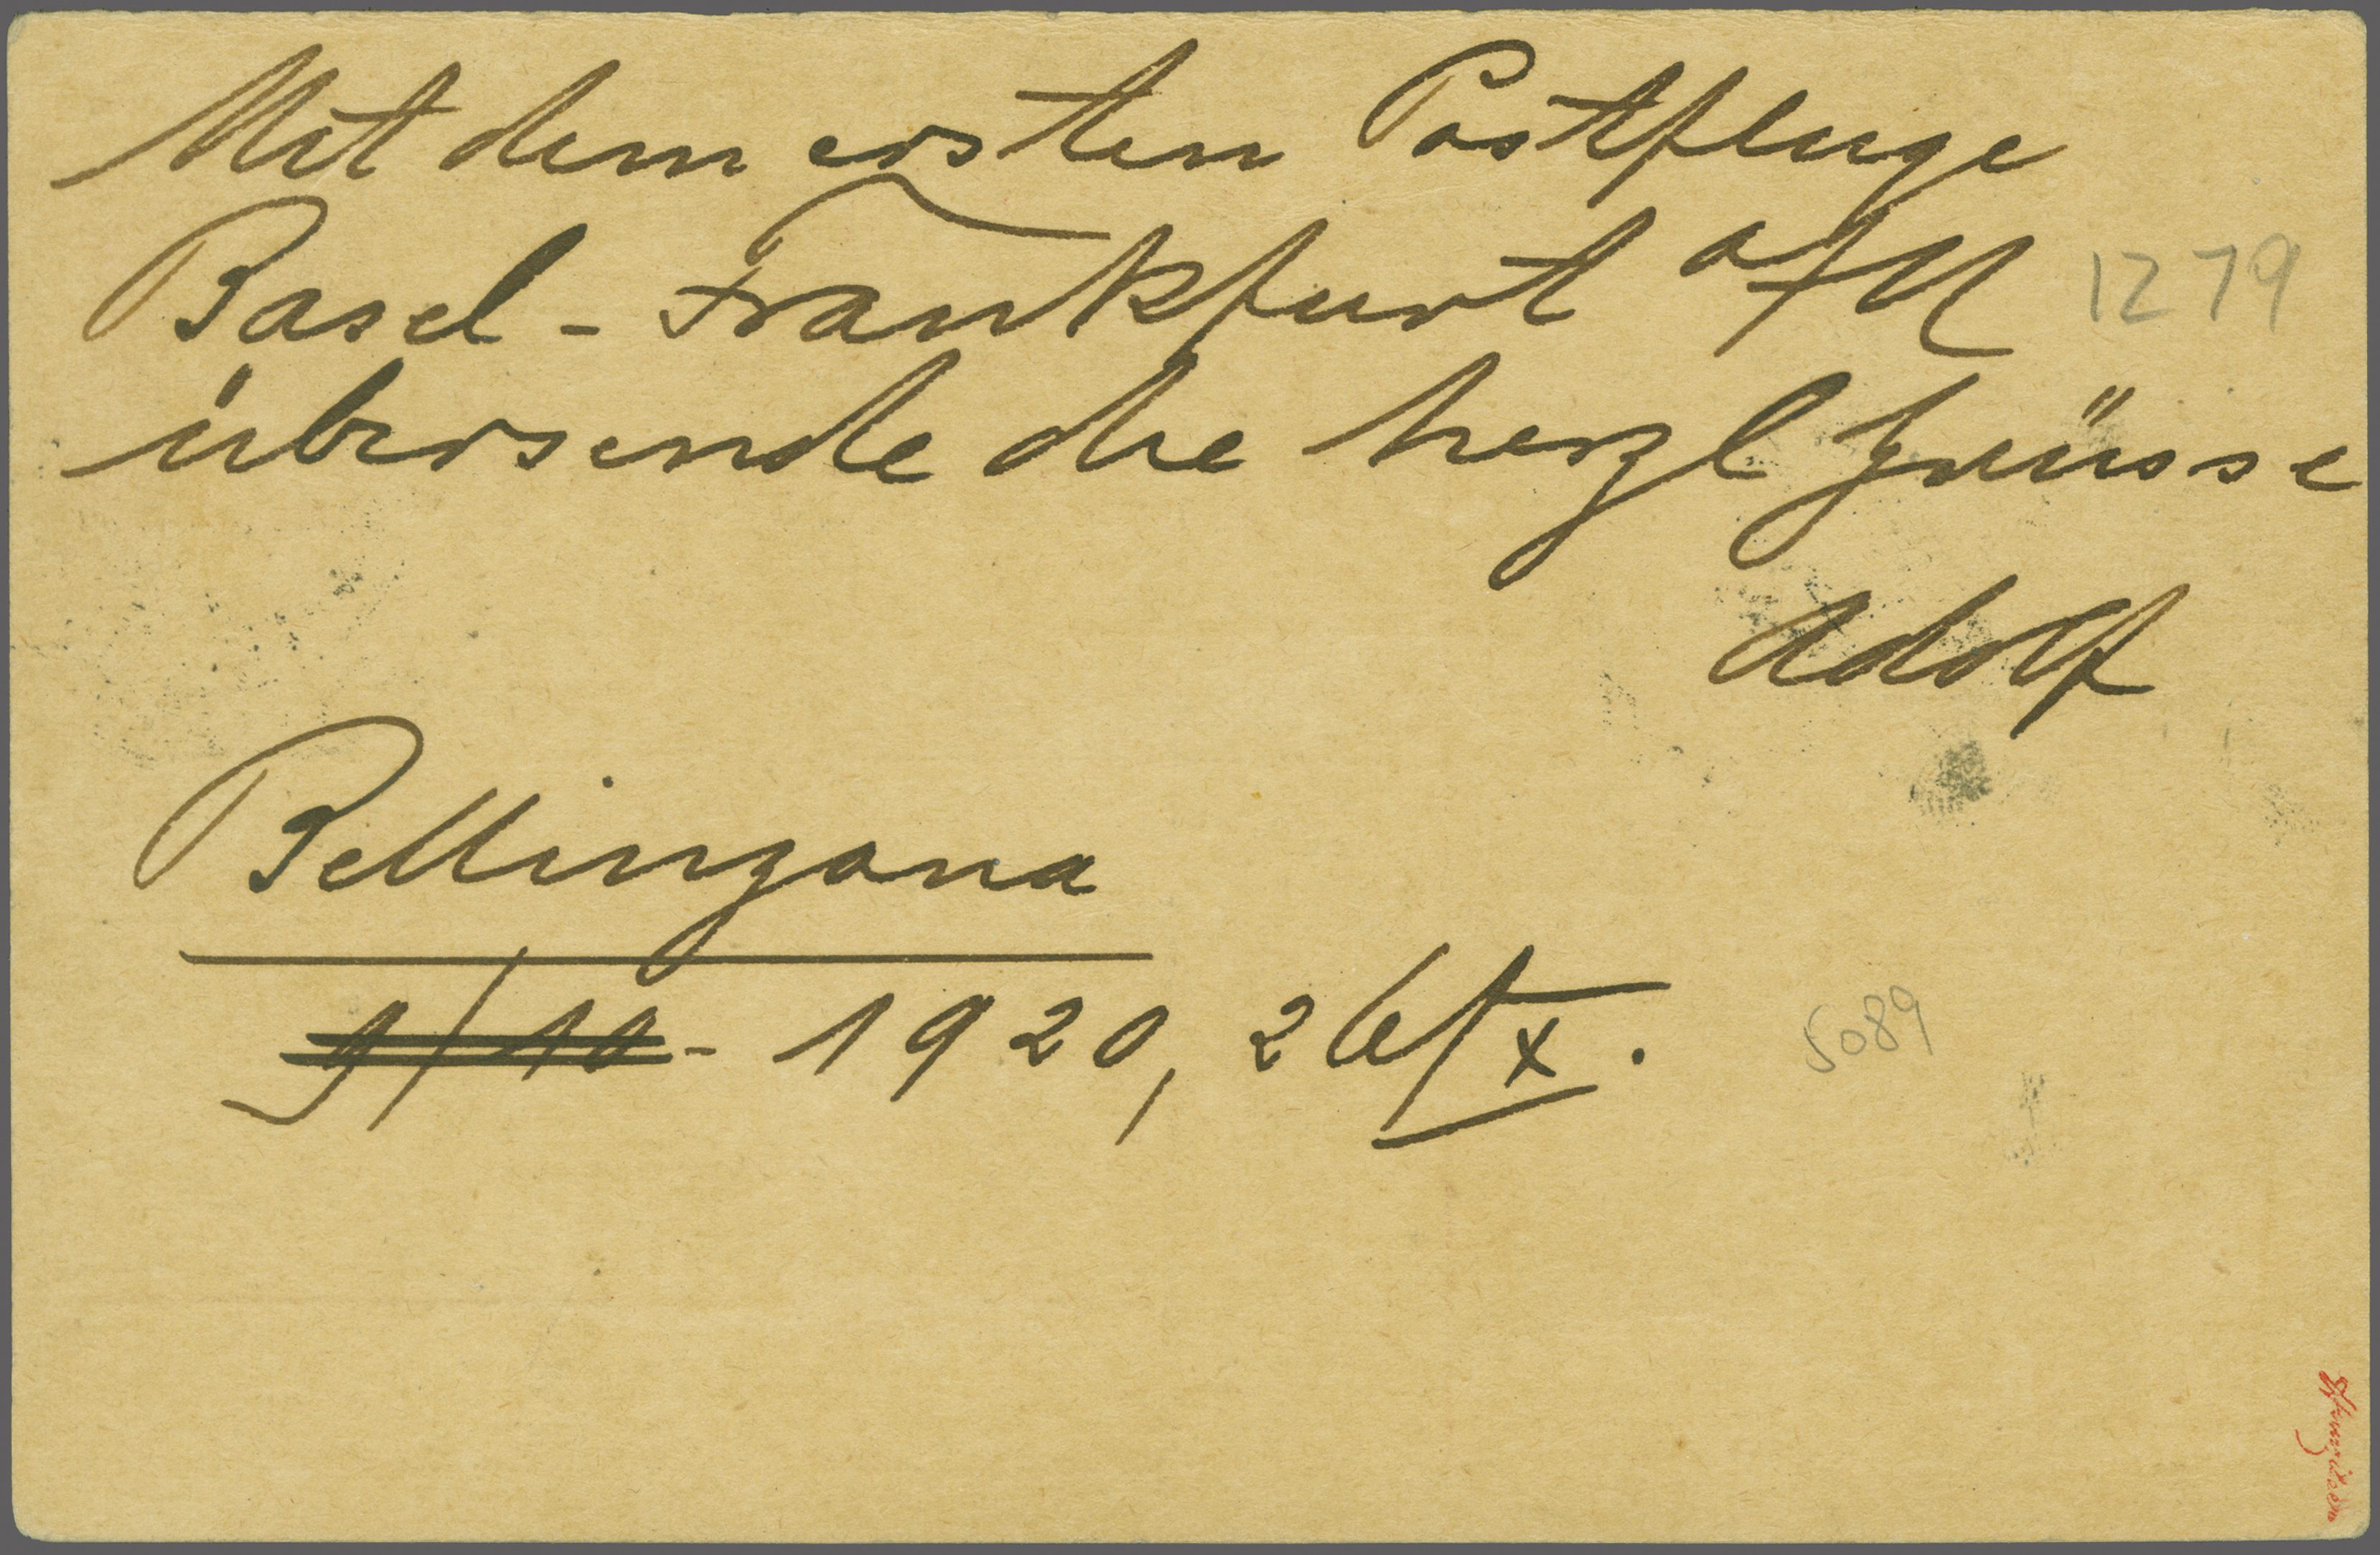 Mit dem ersten Postfluge
Basel - Frankfurt a/M 1279
übersende die herzl Grüsse
Adolf
Bellinzona
9/10 - 1920, 26/IX.
5089